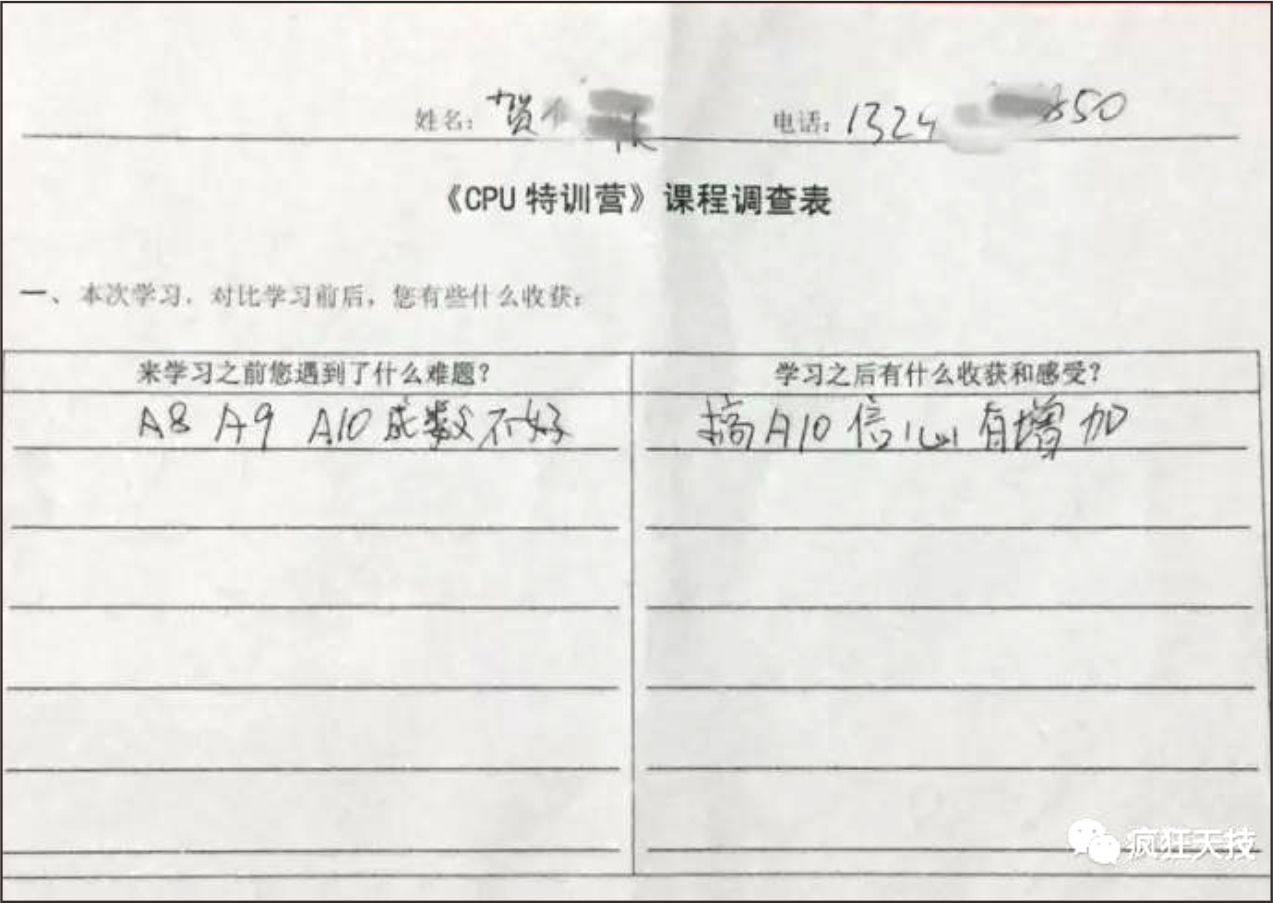 姓名：贺 电话：1324 850
《CPU 特训营》课程调查表
一、本次学习，对比学习前后，您有些什么收获：
来学习之前您遇到了什么难题？ 学习之后有什么收获和感受？
A8 A9 A10 成数不好 搞A10 信心有增加
疯狂天技